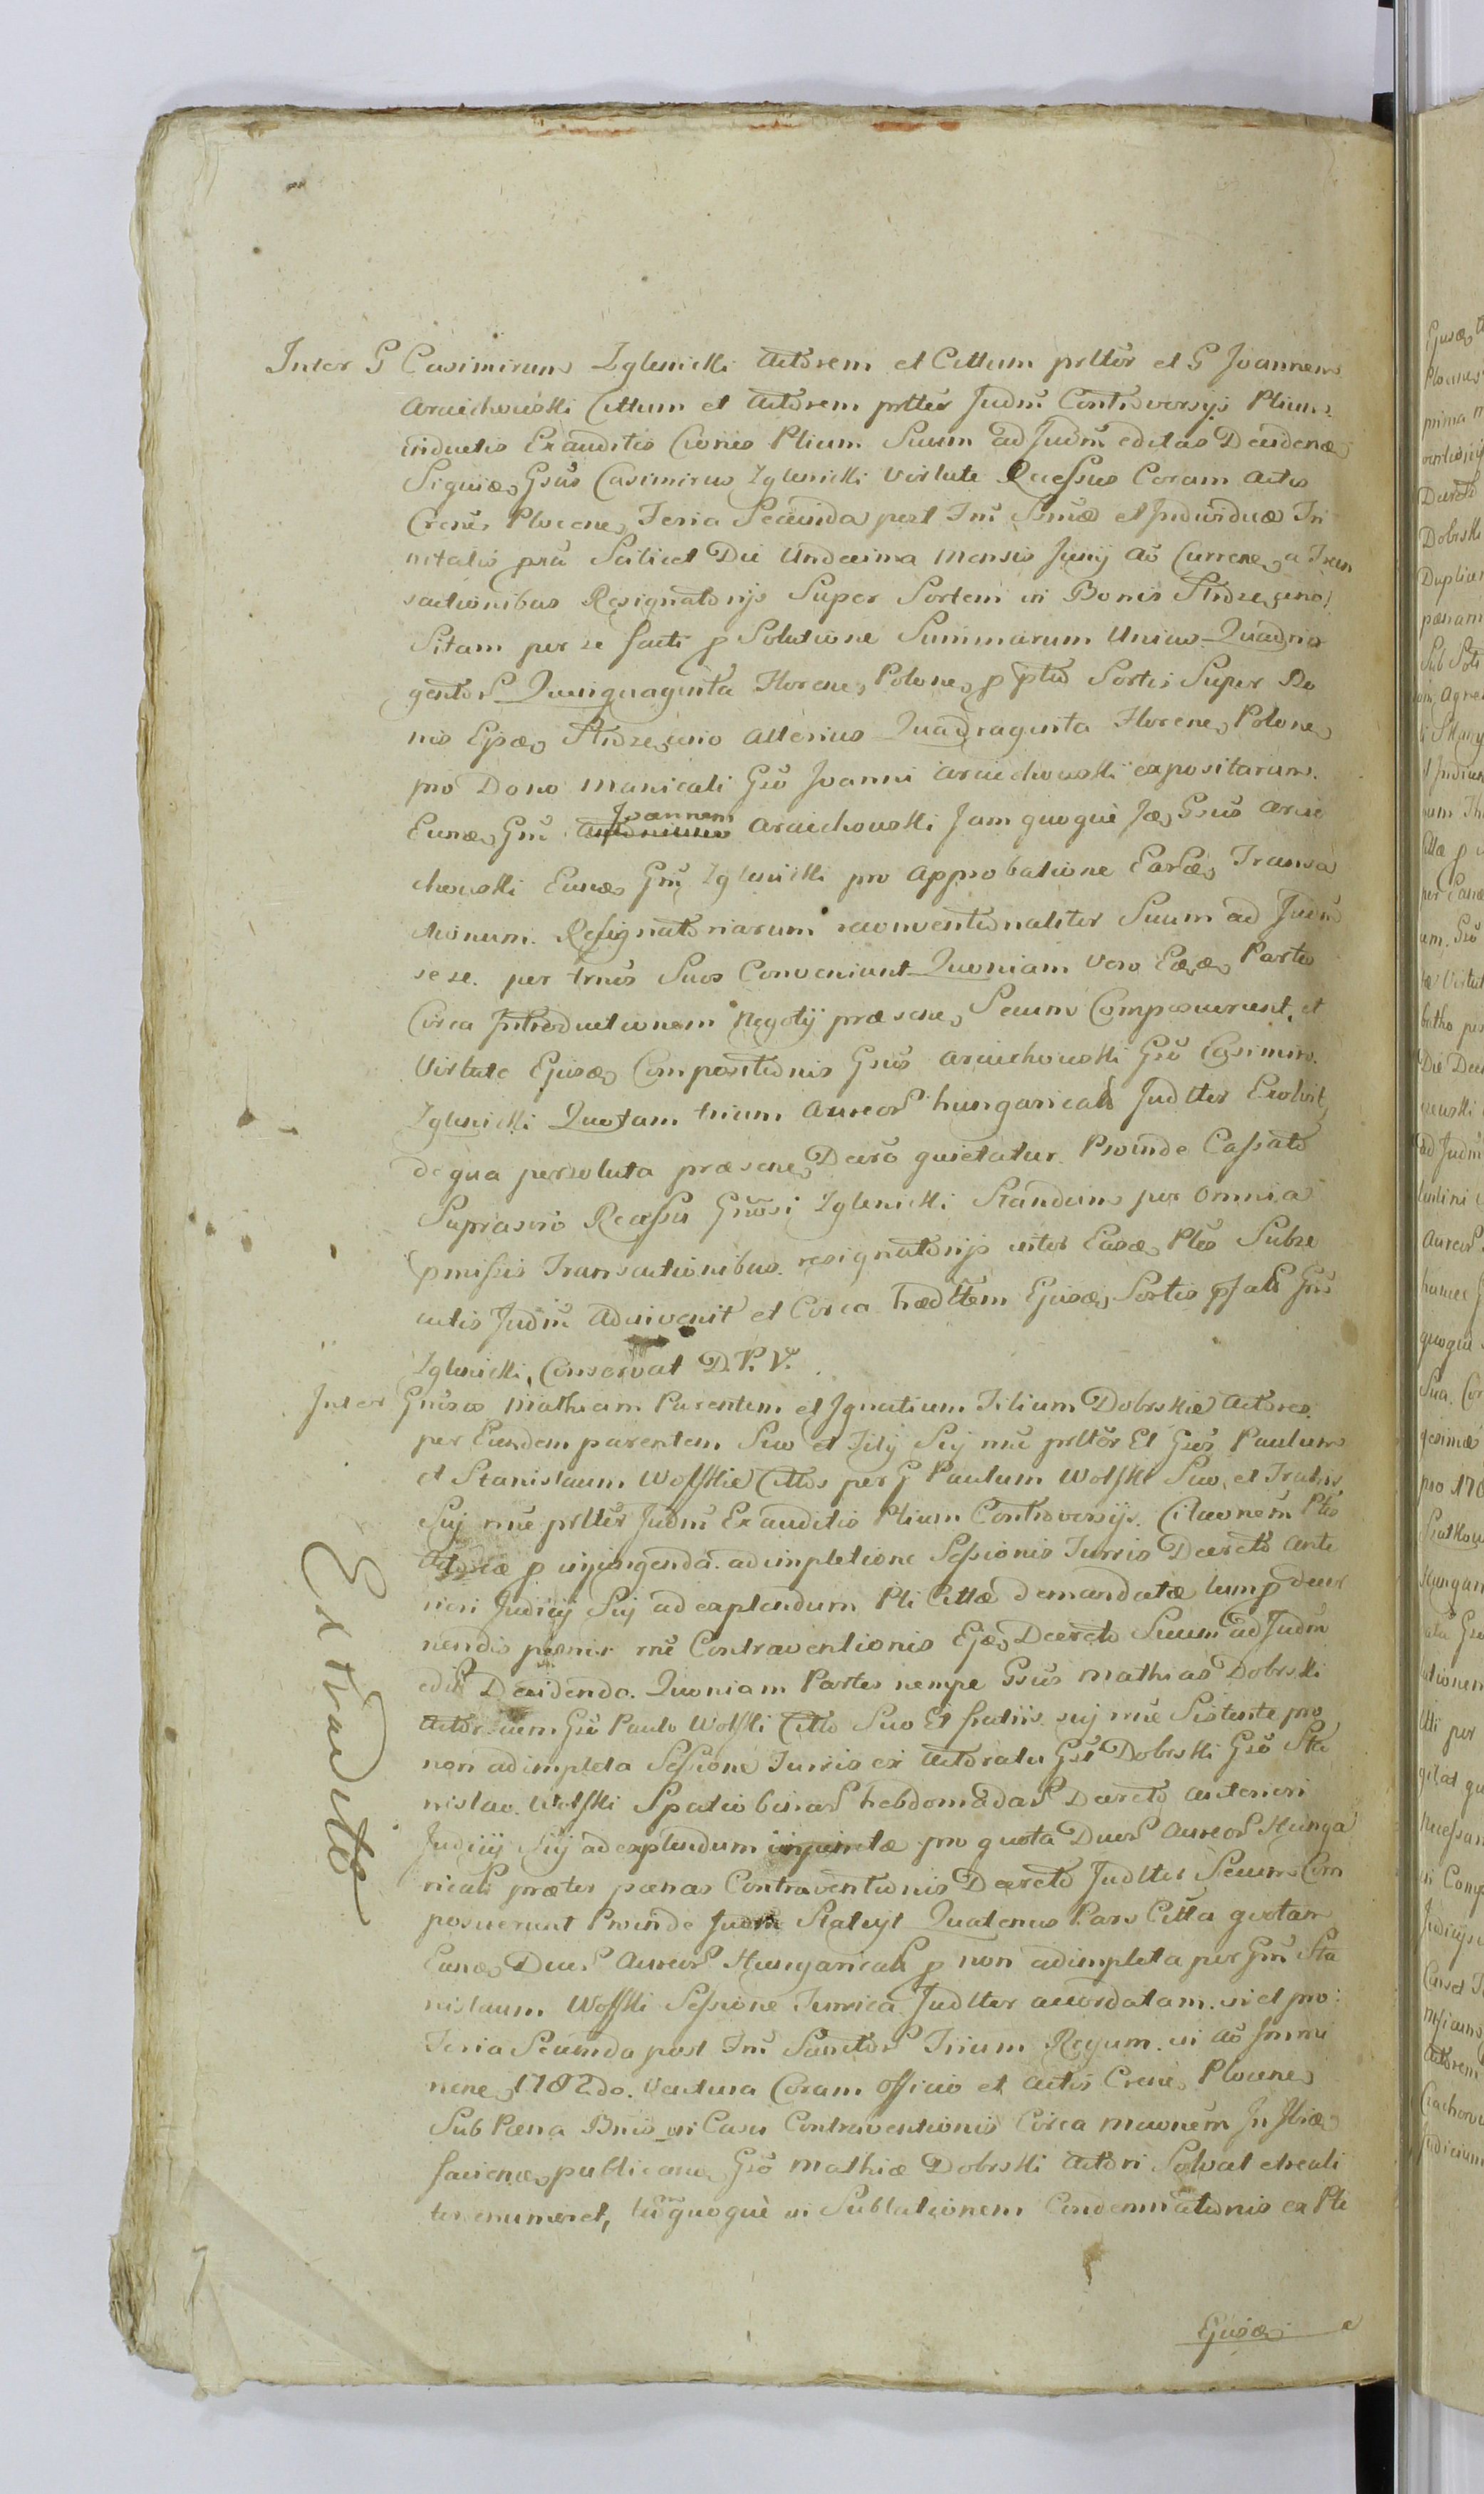 Inter G Casimirum Zglenicki Actorem et Cittum prltter et G Joannem
Arcichowski Cittum et Actorem prltter Judm Controversys Ptium
inductis Exauditis Cionis Ptium Suum ad Judm editas Decidenæ
Siquiæ Gsus Casimirus Zglenicki Virtute Recessus Coram Actis
Crens Plocene Feria Secunda post Fm Ssmæ et Individuæ Tri
nitatis pru Scilicet Die Undecima Mensis Junij Ao Currene a Tran
sactionibus Resignatorijs Super Sortem in Bonis
Sitam per se facti p Solutione Summarum Unius Quadrin
gentor Quinquaginta Florene Polone p ptio Sortis Super Bo
nis Ejsæ alterius Quadraginta Florene Polone
pro Dono Manicali Gso Joanni Arcichowski expositarum
Eunæ Gm Joannem Arcichowski Jam quoque Gsus Arci
chowski Eunæ Gm Zglenicki pro Approbatione Earæ Transa
ctionum Resignatoriarum reconventionaliter Suum ad Judm
sese per trnos Suos Conveniunt Quoniam Vero Eæ Partes
Circa Introductionem Negotij præsene Secum Composuerunt, et
Virtute Ejusæ Compositionis Gsus Arcichowski Gso Casimiro
Zglenicki Quotam trium Aureor hungarical Judtter Exolvit
de qua persoluta præsene Decro quietatur. Proinde Cassato
Suprascrio Recessu Gnosi Zglenicki Standum per Omnia
pmissis Transactionibus resignatorijs inter Easæ Ptes Subse
cutis Judm Adinvenit et Circa hædttem Ejusæ Sortis Gm
Zglenicki, Conservat D. P. V.
Inter Gnosos Mathiam Parentem et Ignatium Filium Dobrskie Actores
per Eundem parentem Suo et Filij Sij nne prltter Et Gsos Paulum
et Stanislaum Wolskie Cittos per G Paulum Wolski Suo, et Fratris
Suj nne prltter Judm Exauditis Ptium Controversijs. Citaonem Ptis
Actoreæ p injungenda adimpletione Sessionis Turris Decreto Ante
riori Judicij Sij ad explendum Pti Cittæ demandatæ tum p decer
nendis poenis rne Contraventionis Ejsæ Decreto Suum ad Judm
edit Decidendo. Quoniam Partes nempe Gsus Mathias Dobrski
Actor cum Gso Paulo Wolski Citto Suo Et fratris suj nne Sistente pro
non adimpleta Sessione Turris ex Actoratu Gsi Dobrski Gso Sta
nislao Wolski Spatio binar hebdomadar Decreto Anteriori
Judicij Sij ad explendum injunctæ pro quota Duor Aureor Hunga
rical præter poenas Contraventionis Decreto Judtter Secum Com
posuerunt Proinde Judm Statuit Quatenus Pars Citta quotam
Eanæ Duor Aureor Hungarical p non adimpleta per Gm Sta
nislaum Wolski Sessione Turrica Judtter accordatam in et pro
Feria Secunda post Fm Sanctor Trium Regum in Ao Immi
nene 1782do. Ventura Coram Officio et Actis Crene Plocene
Sub Poena Bnis in Casu Contraventionis Circa
faciene publicane Gso Mathiæ Dobrski Actori Solvat et reali
ter enumeret, tum quoque in Sublationem Condemnationis ex Pte
Ejusæ
Extraditto